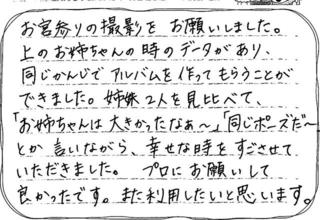 お宮参りの撮影をお願いしました。
上のお姉ちゃんの時のデータがあり、
同じかんじでアルバムを作ってもらうことが
できました。姉妹2人を見比べて、
「お姉ちゃんは大きかったなぁ〜」「同じポーズだ〜」
とか言いながら、幸せな時をすごさせて
いただきました。 プロにお願いして
良かったです。また利用したいと思います。